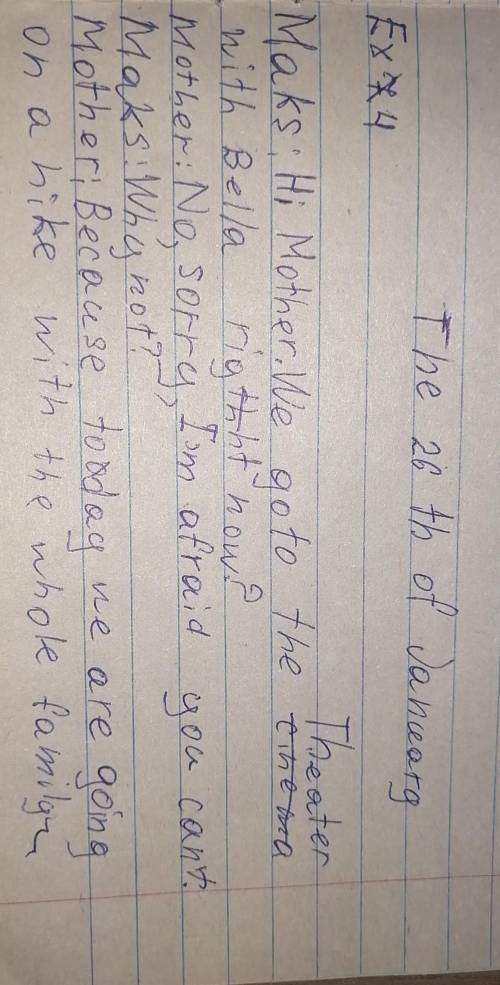 The 26 th of January
Ex 4
Maks: Hi Mother. We go to the Theater
with Bella right now?
Mother: No, sorry, I'm afraid you cant.
Maks: Why not?
Mother: Because today we are going
on a hike with the whole family